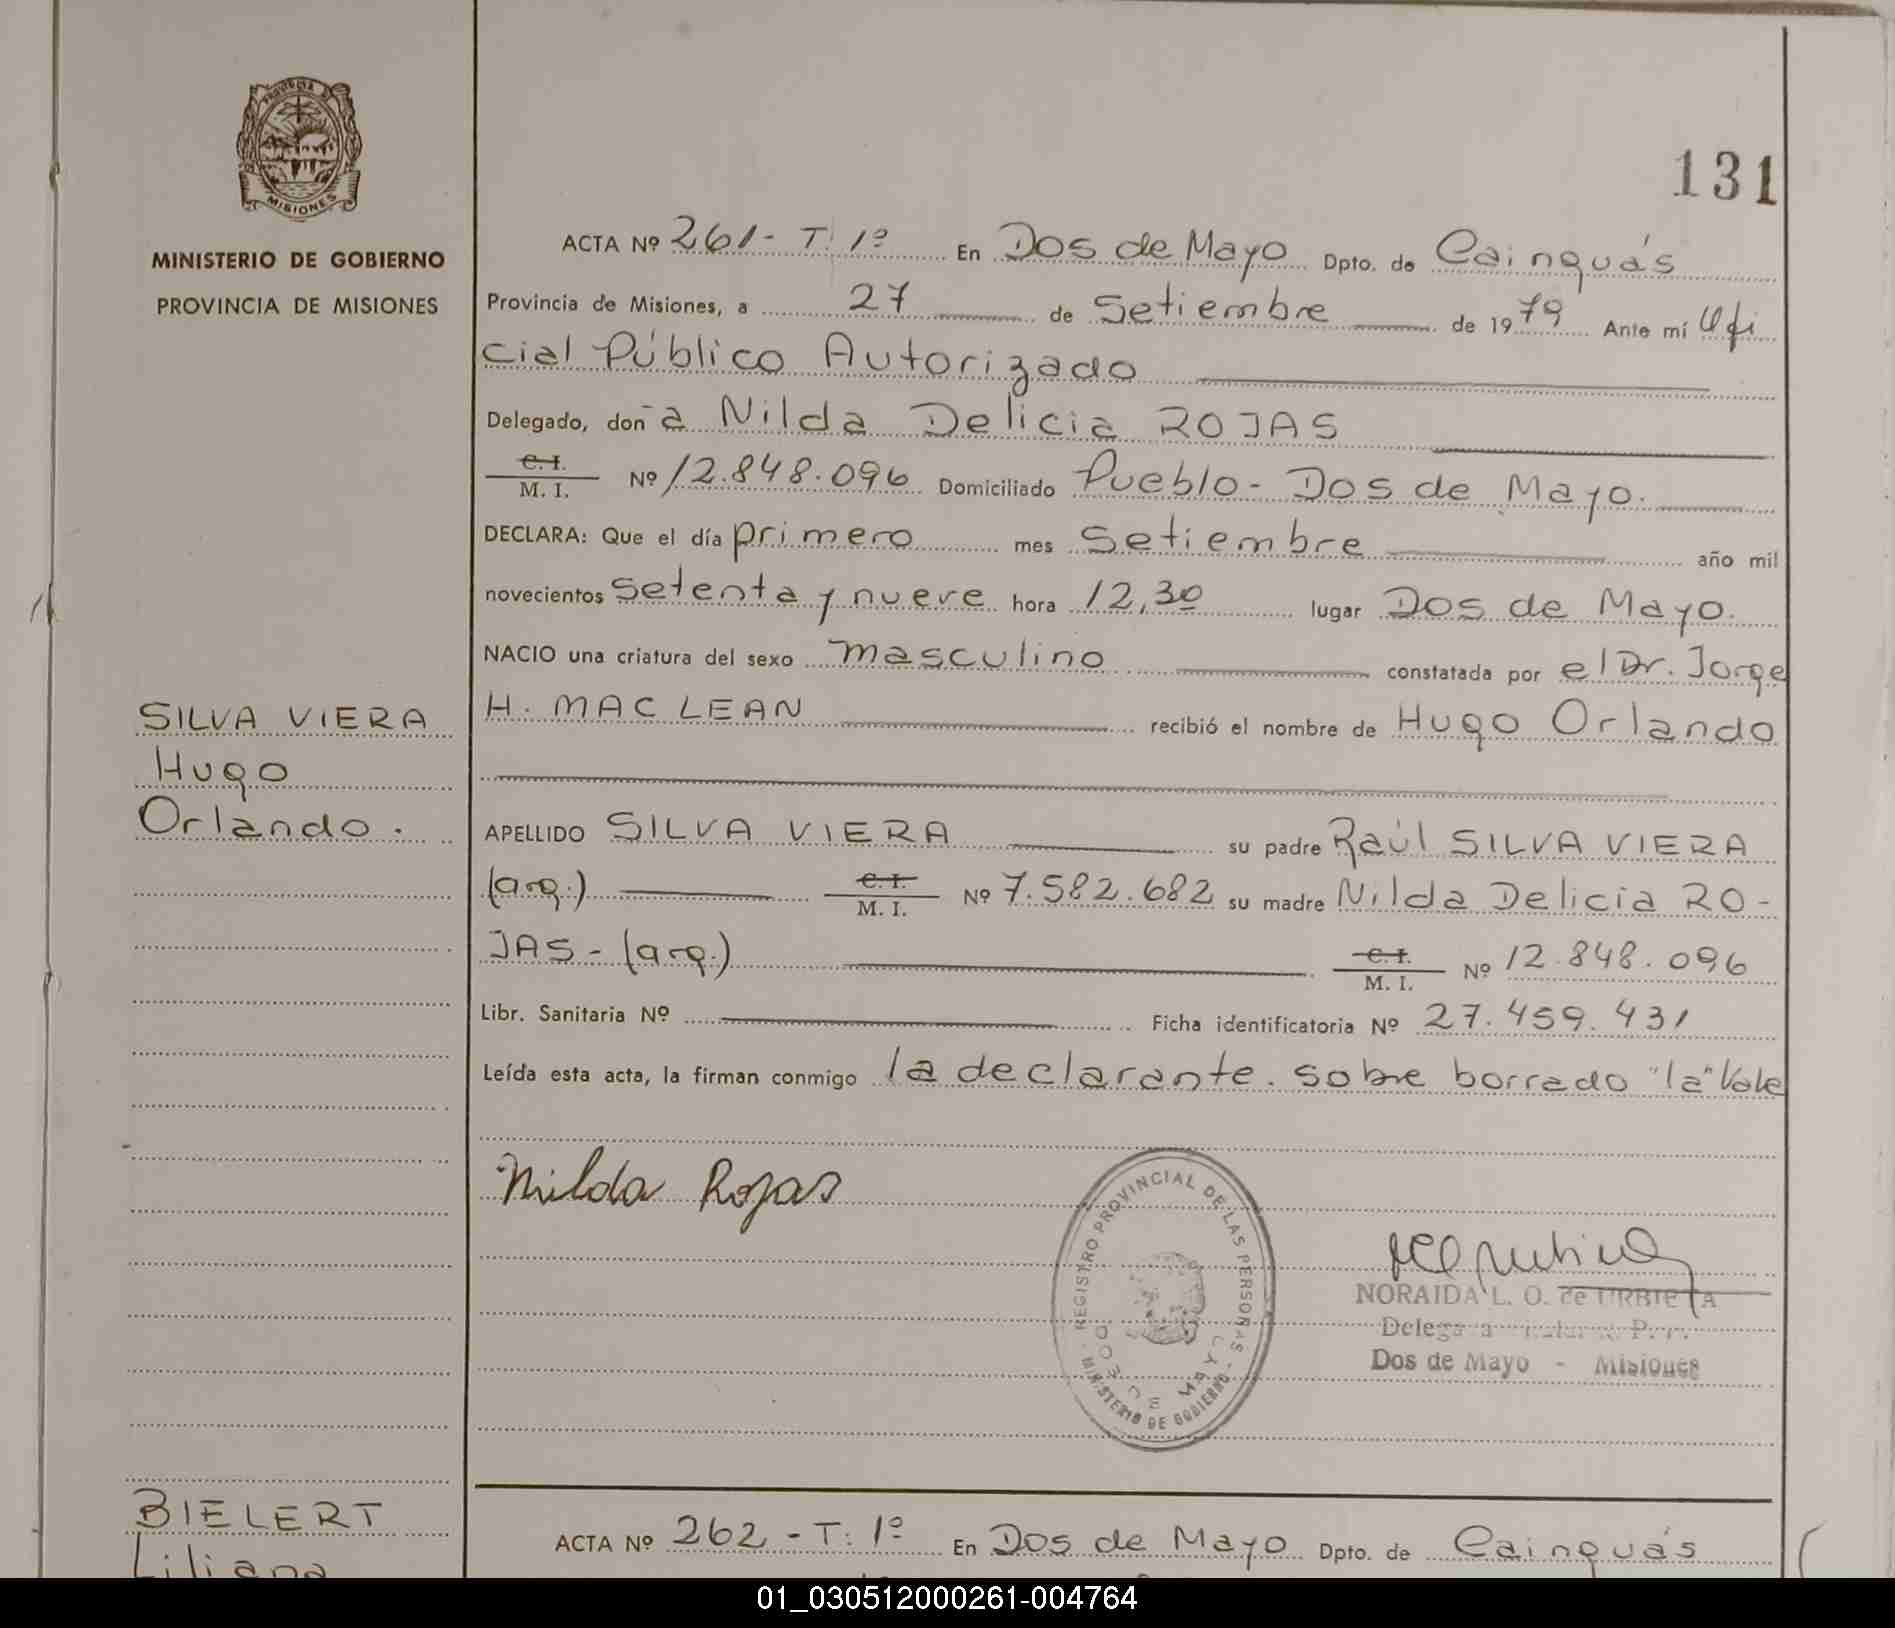 PROVINCIA DE
MISIONES
MINISTERIO DE GOBIERNO
PROVINCIA DE MISIONES
131
ACTA Nº 261 - T: 1º En Dos de Mayo Dpto. de Cainguás
Provincia de Misiones, a 27 de Setiembre de 1979 Ante mí Ofi
cial Público Autorizado
Delegado, don~a Nilda Delicia ROJAS
C. I.
M. I. Nº 12.848.096 Domiciliado Pueblo - Dos de Mayo.
DECLARA: Que el día primero mes Setiembre año mil
novecientos setenta y nueve hora 12,30 lugar Dos de Mayo.
NACIO una criatura del sexo masculino constatada por el Dr. Jorge
H. MAC LEAN recibió el nombre de Hugo Orlando
SILVA VIERA
Hugo
Orlando.
APELLIDO SILVA VIERA su padre Raúl SILVA VIERA
(arg.) C. I. M. I. Nº 7.582.682 su madre Nilda Delicia RO-
JAS - (arg.) C. I. M. I. Nº 12.848.096
Libr. Sanitaria Nº Ficha identificatoria Nº 27.459.431
Leída esta acta, la firman conmigo la declarante. sobre borrado "la" Vale
Nilda Rojas
REGISTRO PROVINCIAL DE LAS PERSONAS
MINISTERIO DE GOBIERNO
DOS DE MAYO
NORAIDA L. O. de URBIETA
Dos de Mayo - Misiones
BIELERT
Liliana
ACTA Nº 262 - T: 1º En Dos de Mayo Dpto. de Cainguás
01_030512000261-004764